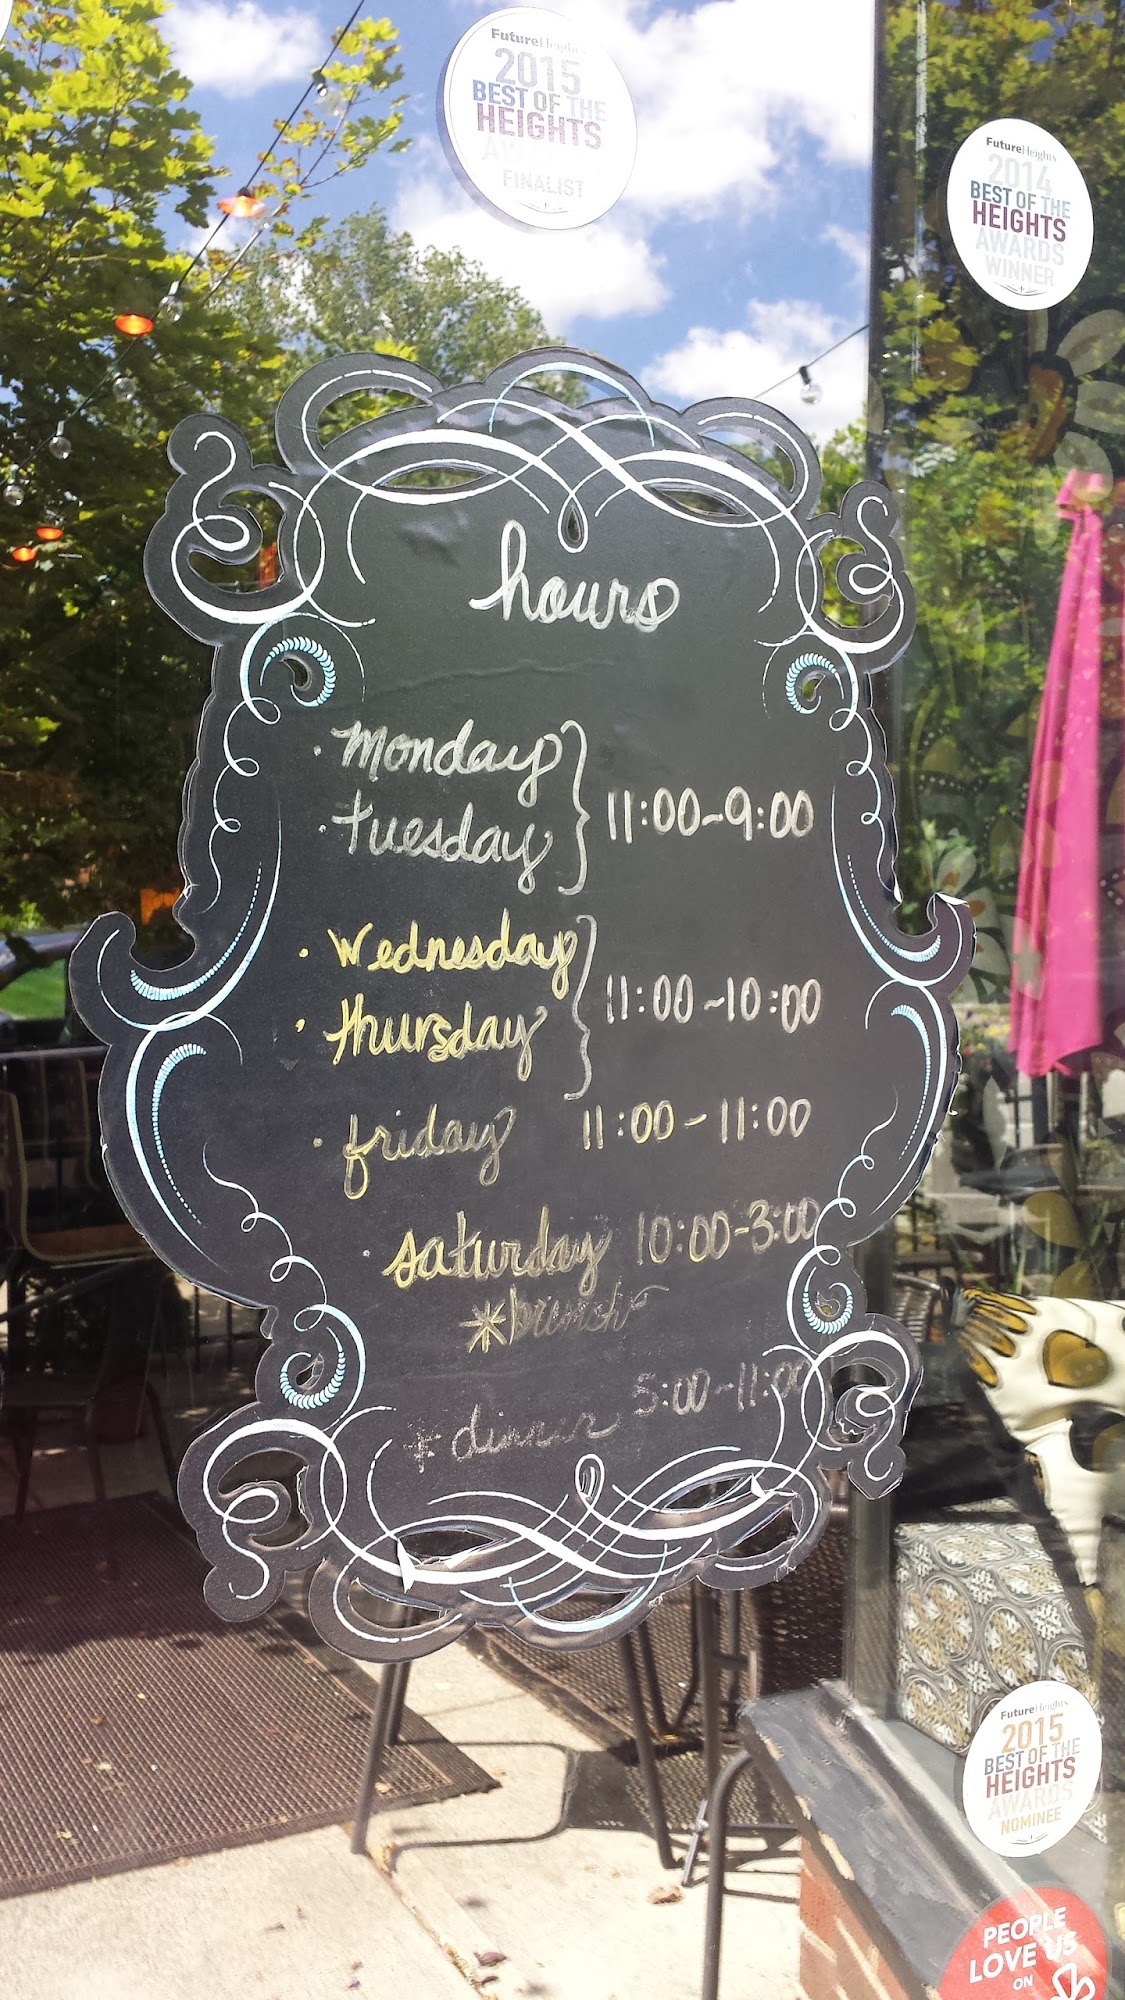 FutureHeights
2015
BEST OF THE
HEIGHTS
FINALIST
FutureHeights
2014
BEST OF THE
HEIGHTS
AWARDS
WINNER
hours
· monday
· tuesday } 11:00~9:00
· wednesday
· thursday } 11:00~10:00
· friday 11:00-11:00
· saturday 10:00-3:00
*brunch
+ dinner 5:00-11:00
FutureHeights
2015
BEST OF THE
HEIGHTS
AWARDS
NOMINEE
PEOPLE
LOVE US
ON